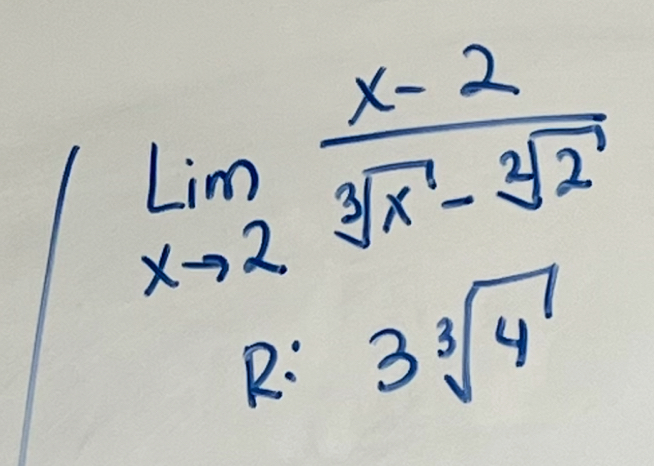 Lim x→2 (x - 2)/(∛x - ²√2)
R: 3∛4